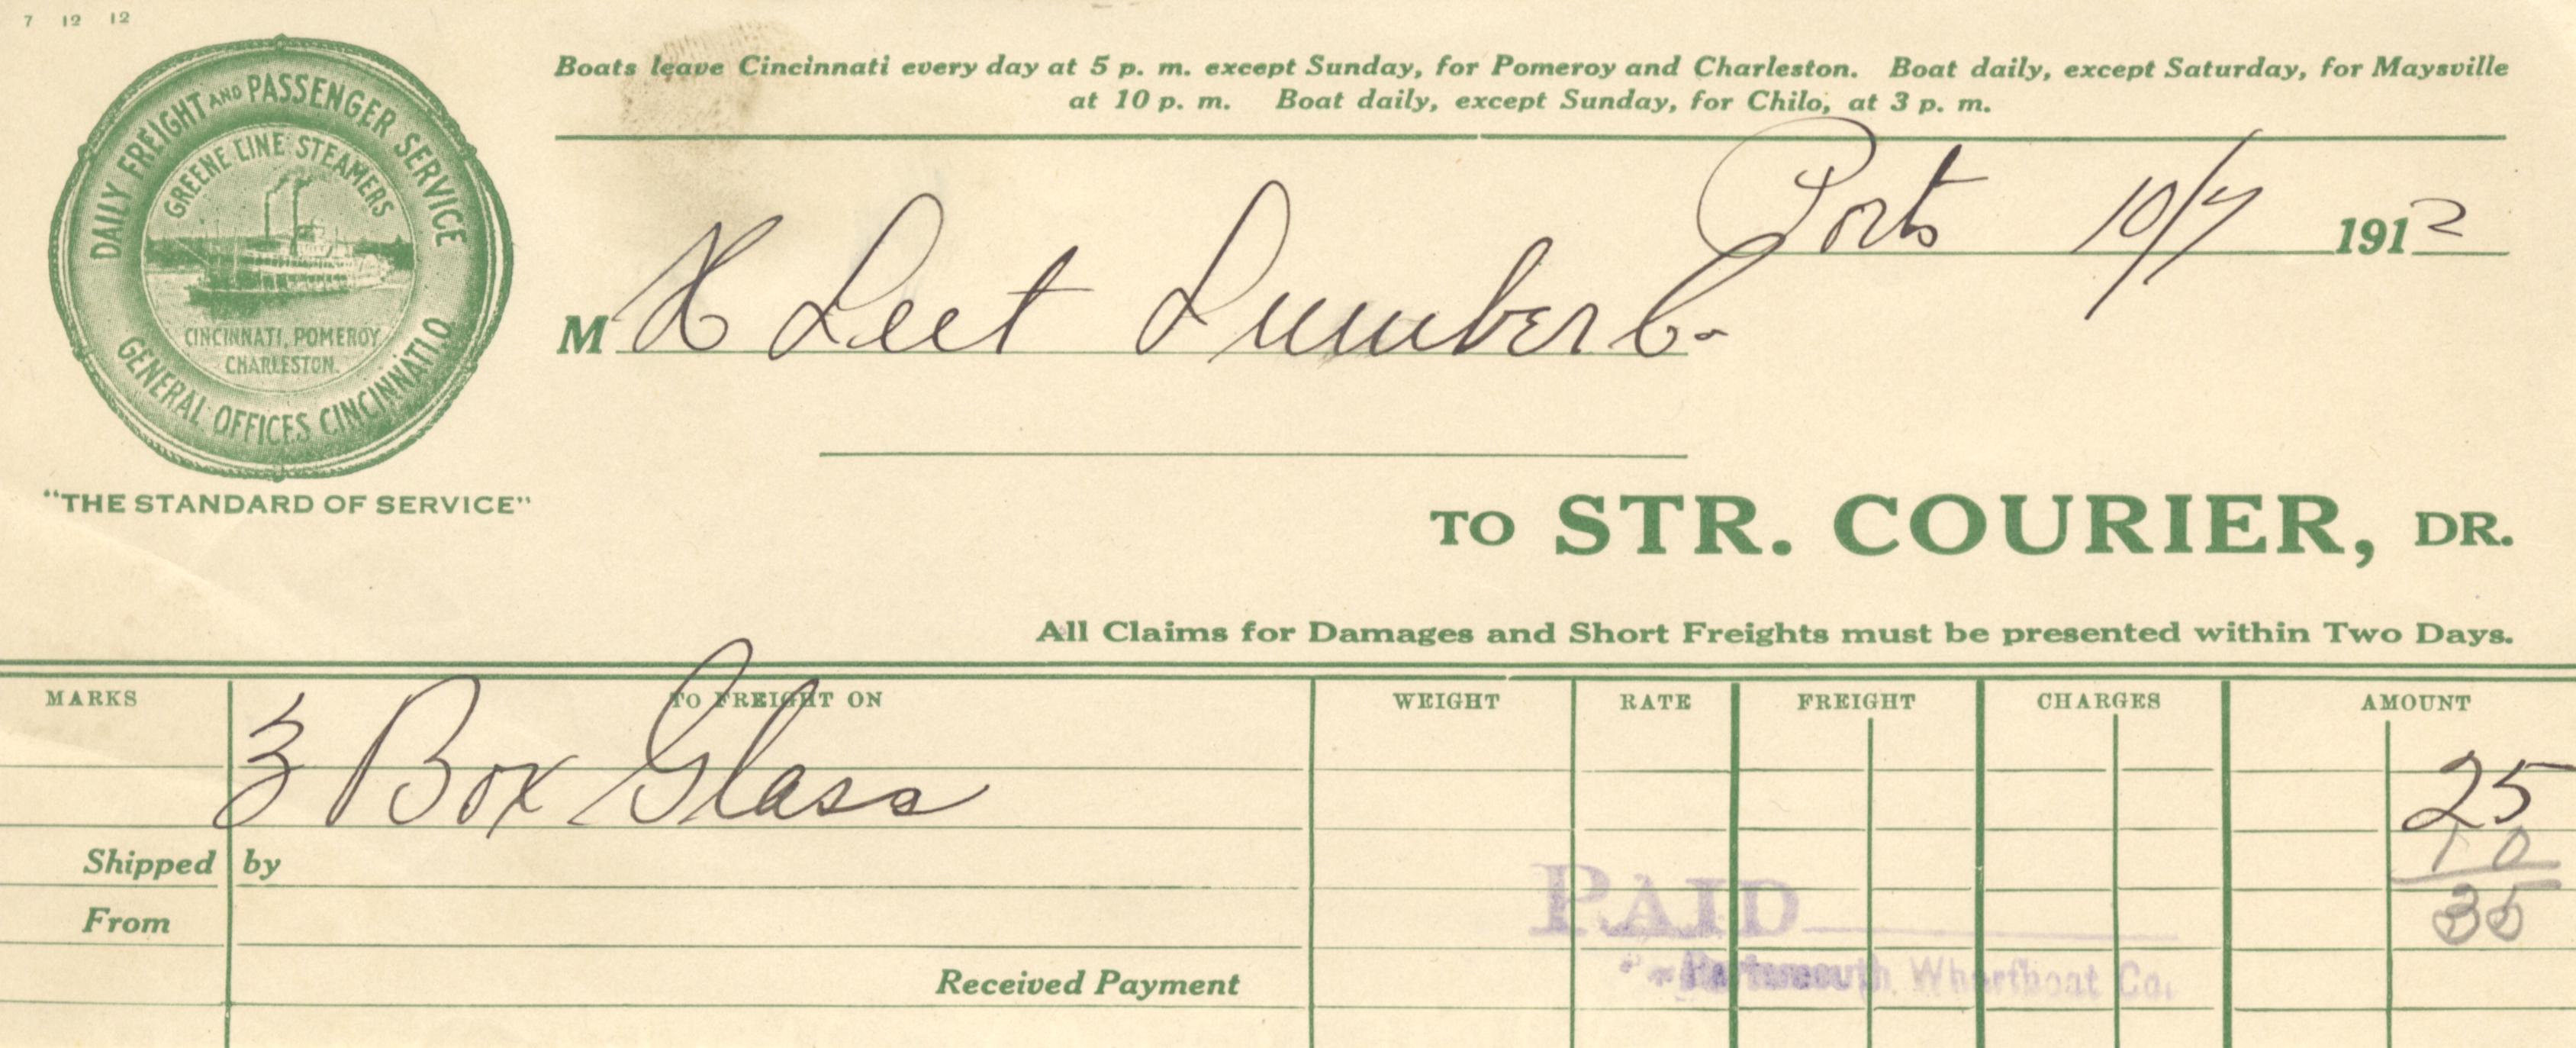 7 12 12
DAILY FREIGHT AND PASSENGER SERVICE
GREENE LINE STEAMERS
CINCINNATI, POMEROY
CHARLESTON.
GENERAL OFFICES CINCINNATI, O.
"THE STANDARD OF SERVICE"
Boats leave Cincinnati every day at 5 p. m. except Sunday, for Pomeroy and Charleston. Boat daily, except Saturday, for Maysville
at 10 p. m. Boat daily, except Sunday, for Chilo, at 3 p. m.
Ports 10/7 1912
M H Leet Lumber Co
TO STR. COURIER, DR.
All Claims for Damages and Short Freights must be presented within Two Days.
MARKS TO FREIGHT ON WEIGHT RATE FREIGHT CHARGES AMOUNT
3 Box Glass 25
Shipped by 10
From 35
PAID
Received Payment
Portsmouth Wharfboat Co.